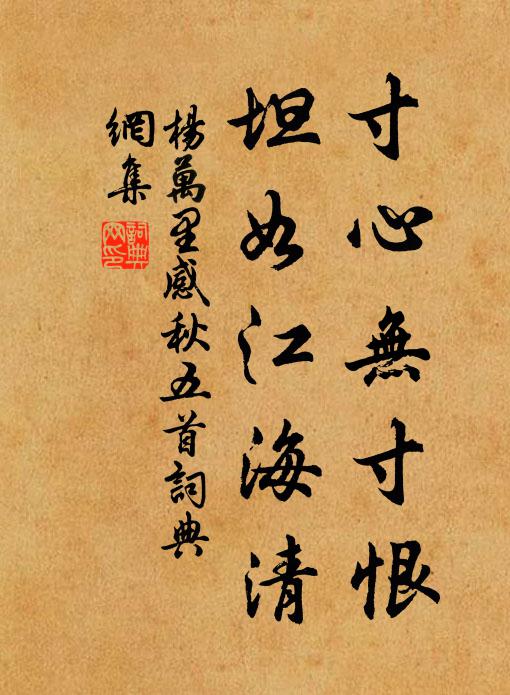 寸心無寸恨
坦如江海清
楊萬里感秋五首詞典
網集
詞典
网印